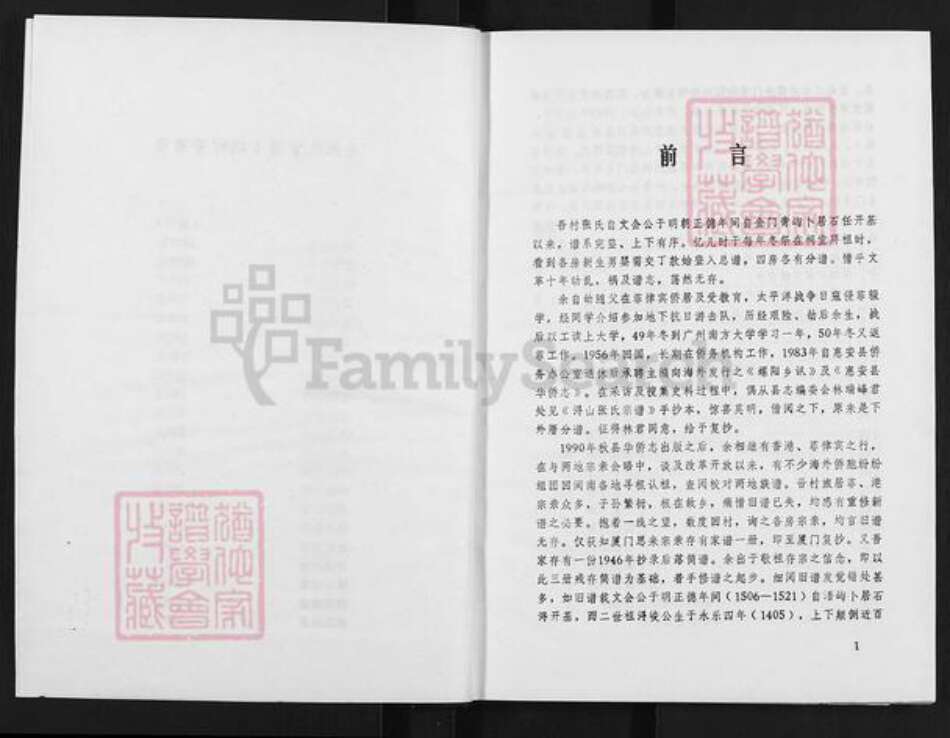 前 言
吾村张氏自文会公于明朝正德年间自金门青屿卜居石任开基
以来，谱系完整、上下有序。忆儿时于每年冬祭在祠堂拜祖时，
看到各房新生男婴需交丁款始登入总谱，四房各有分谱。惜乎文
革十年动乱，祸及谱志，荡然无存。
余自幼随父在菲律宾侨居及受教育，太平洋战争日寇侵菲辍
学，经同学介绍参加地下抗日游击队，历经艰险，劫后余生，战
后以工读上大学，49年冬到广州南方大学学习一年，50年冬又返
菲工作。1956年回国，长期在侨务机构工作，1983年自惠安县侨
务办公室退休后承聘主编向海外发行之《螺阳乡讯》及《惠安县
华侨志》。在采访及搜集史料过程中，偶从县志编委会林瑞峰君
处见《浔山张氏宗谱》手抄本，惊喜莫明，借阅之下，原来是下
外厝分谱。征得林君同意，给予复抄。
1990年秋县华侨志出版之后，余相继有香港、菲律宾之行，
在与两地宗亲会晤中，谈及改革开放以来，有不少海外侨胞纷纷
组团回闽南各地寻根认祖，查阅校对两地族谱。吾村旅居菲、港
宗亲众多，子孙繁衍，根在故乡，痛惜旧谱已失，均感有重修新
谱之必要。抱着一线之望，数度回村，询之各房宗亲，均言旧谱
无存。仅获知厦门思来宗亲存有家谱一册，即至厦门复抄。又吾
家存有一份1946年抄录后落简谱。余出于敬祖存宗之信念，即以
此三册残存简谱为基础，着手修谱之起步。细阅旧谱发觉错处甚
多，如旧谱载文会公于明正德年间（1506—1521）自浯屿卜居石
浔开基，而二世祖浔峻公生于永乐四年（1405），上下颠倒近百
1
FamilySearch